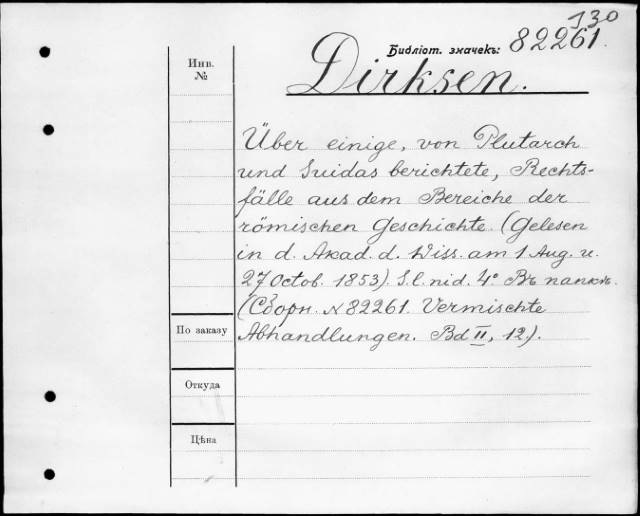 130
Библіот. значекъ: 82261.
Инв.
№
Dirksen.
Über einige, von Plutarch
und Suidas berichtete, Rechts-
fälle aus dem Bereiche der
römischen Geschichte. (Gelesen
in d. Akad. d. Wiss. am 1 Aug. u.
27 Octob. 1853). S. l. n i d. 4º. Въ папкѣ.
(Сборн. № 82261. Vermischte
По заказу
Abhandlungen. Bd II, 12.).
Откуда
Цѣна